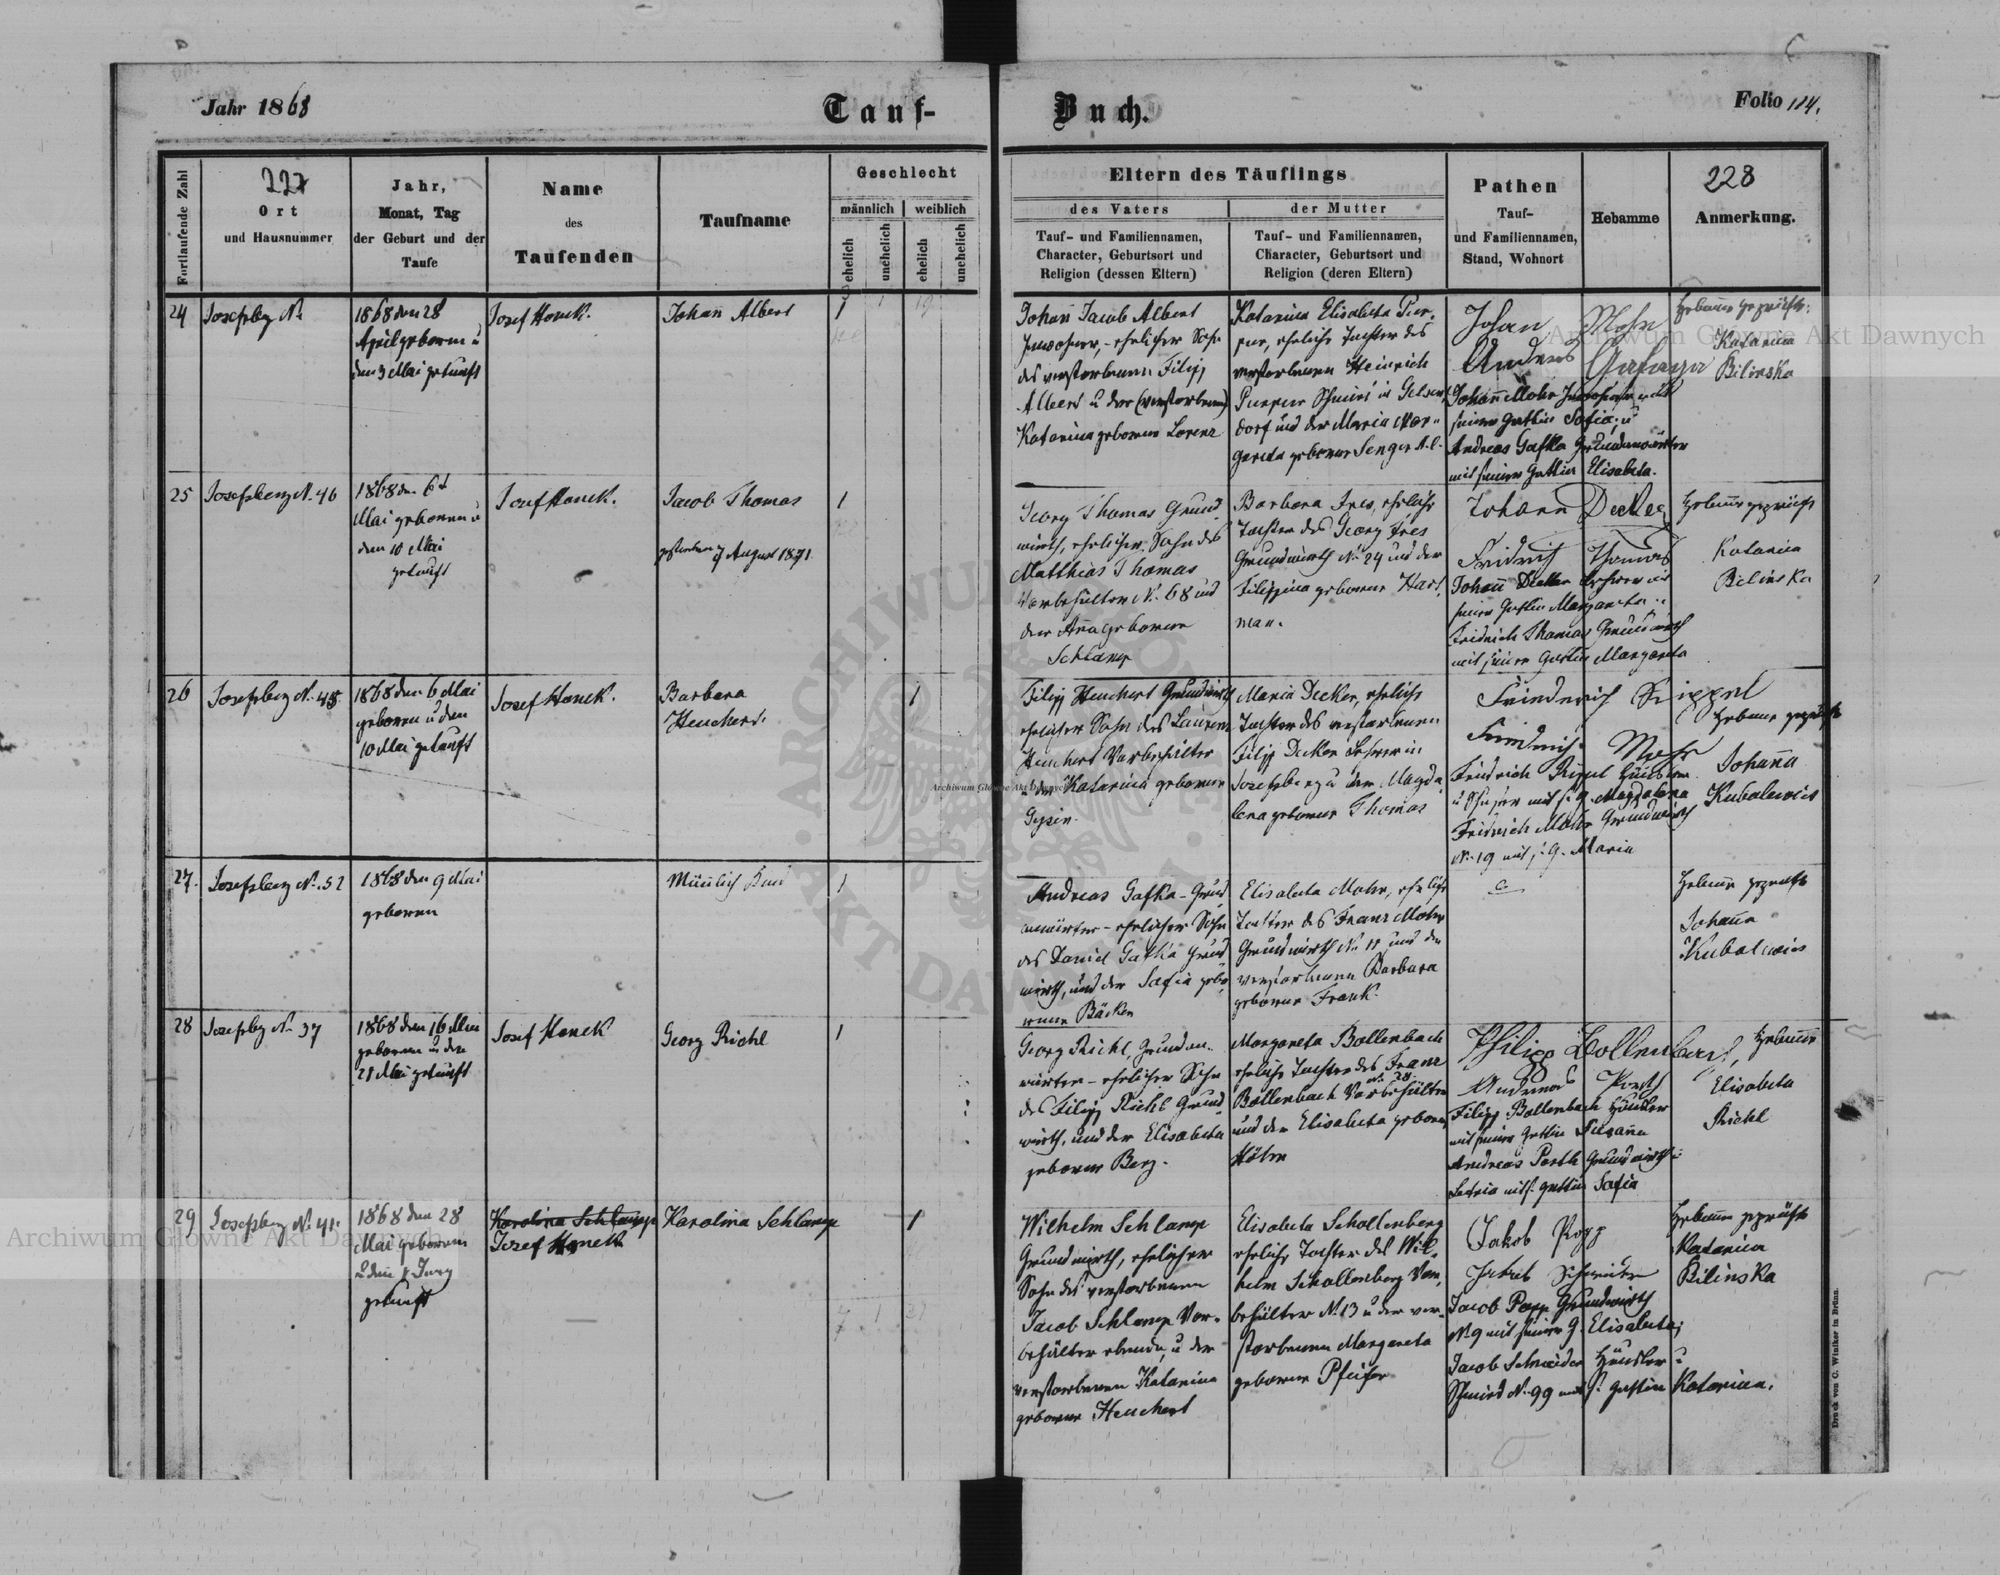 Jahr 1868
Tauf-
Buch.
Folio 114.
Fortlaufende Zahl
227
Ort
und Hausnummer
Jahr,
Monat, Tag
der Geburt und der
Taufe
Name
des
Taufenden
Taufname
Geschlecht
männlich
weiblich
ehelich
unehelich
ehelich
unehelich
Eltern des Täuflings
des Vaters
der Mutter
Tauf- und Familiennamen,
Character, Geburtsort und
Religion (dessen Eltern)
Tauf- und Familiennamen,
Character, Geburtsort und
Religion (deren Eltern)
Pathen
Tauf-
und Familiennamen,
Stand, Wohnort
Hebamme
228
Anmerkung.
24
Josefsbg N.
1868 den 28
April geboren u
den 3 Mai getauft
Josef Honek.
Johann Albert
1
Johann Jacob Albert
Inwohner, ehelicher Sohn
des verstorbenen Filipp
Albert u der (verstorbenen)
Katarina geborene Lorenz
Katarina Elisabeta
eheliche Tochter des
verstorbenen Heinrich
dorf und der Maria Mar-
gareta geborne Senger
Johan Mohr
Andreas
Johann Mohr Inwohner mit
seiner Gattin Sofia; u
Andreas Gafka Grundanwärter
mit seiner Gattin Elisabeta.
Hebamme geprüfte
Katarina
Bilinska
25
Josefsberg N. 46
1868 den 6t
Mai geboren u
den 10 Mai
getauft
Josef Honek.
Jacob Thomas
gestorben 7 August 1871
1
Georg Thomas Grund
wirth, ehelicher Sohn des
Matthias Thomas
Vorbehälter N. 68 und
der Anna geborene
Schlamp
Barbara Fres, eheliche
Tochter des Georg Fres
Grundwirth N. 24 und der
Filippina geborene Hart
man.
Johann Decker
Fridrich Thomas
Johann Decker Lehrer mit
seiner Gattin Margareta u
Fridrich Thomas Grundwirth
mit seiner Gattin Margareta
Hebamme geprüfte
Katarina
Bilinska
26
Josefsberg N. 45
1868 den 6 Mai
geboren u den
10 Mai getauft
Josef Honek.
Barbara
Heuchert.
1
Filipp Heuchert Grundwirth
ehelicher Sohn des Laurenz
Heuchert Vorbehälter
u der Katarina geborene
Maria Decker, eheliche
Tochter des verstorbenen
Filipp Decker Lehrer in
Josefsberg u der Magda
lena geborne Thomas
Friederich Rippel
Friedrich Mohr
Fridrich Rippel Häusler
mit s. G. Magdalena
Fridrich Mohr Grundwirth
N. 19 mit s. G. Maria
Hebamme geprüfte
Johanna
Kubalewics
27.
Josefsberg N. 52
1868 den 9 Mai
geboren
Mänlich Kind
1
Andreas Gafka - Grund
anwärter - ehelicher Sohn
des Daniel Gafka Grund
wirth, und der Sofia gebo
rnen Bäcker
Elisabeta Mohr, eheliche
Tochter des Franz Mohr
Grundwirth N. 11 und der
verstorbenen Barbara
geborne Frank.
Hebamme geprüfte
Johanna
Kubalewics
28
Josefsbg N. 37
1868 den 16 Mai
geboren u den
21 Mai getauft
Josef Honek
Georg Richl
1
Georg Richl, Grundan-
wärter - ehelicher Sohn
des Filipp Richl Grund
wirth, und der Elisabeta
geborne Berg.
Margareta Bollenbach
eheliche Tochter des Franz
Bollenbach Vorbehälter
N. 28.
und der Elisabeta geborne
Philipp Bollenbach,
Andreas Porth
Filipp Bollenbach Häusler
mit seiner Gattin Susanna
Andreas Porth Grundwirth
mit s. Gattin Sofia
Hebamme
Elisabeta
Richl
29
Josefsberg N. 41.
1868 den 28
Mai geboren
getauft
Karolina Schlamp
Josef Honek
Karolina Schlamp
1
Wilhelm Schlamp
Grundwirth, ehelicher
Sohn des verstorbenen
Jacob Schlamp Vor-
behälter ebenda, u der
verstorbenen Katarina
geborne Heuchert
Elisabeta Schollenberg
eheliche Tochter des Wil-
helm Schollenberg Vor-
behälter N. 13 u der ver-
storbenen Margareta
geborne Pfeifer
Jakob Popp
Jakob Schneider
Jacob Popp Grundwirth
N. 9 mit seiner G. Elisabeta;
Jacob Schneider Häusler u
Schmied N. 99 mit s. Gattin Katarina.
Hebamme geprüfte
Katarina
Bilinska
Druck von C. Winiker in Brünn.
Archiwum Główne Akt Dawnych
Archiwum Główne Akt Dawnych
Archiwum Główne Akt Dawnych